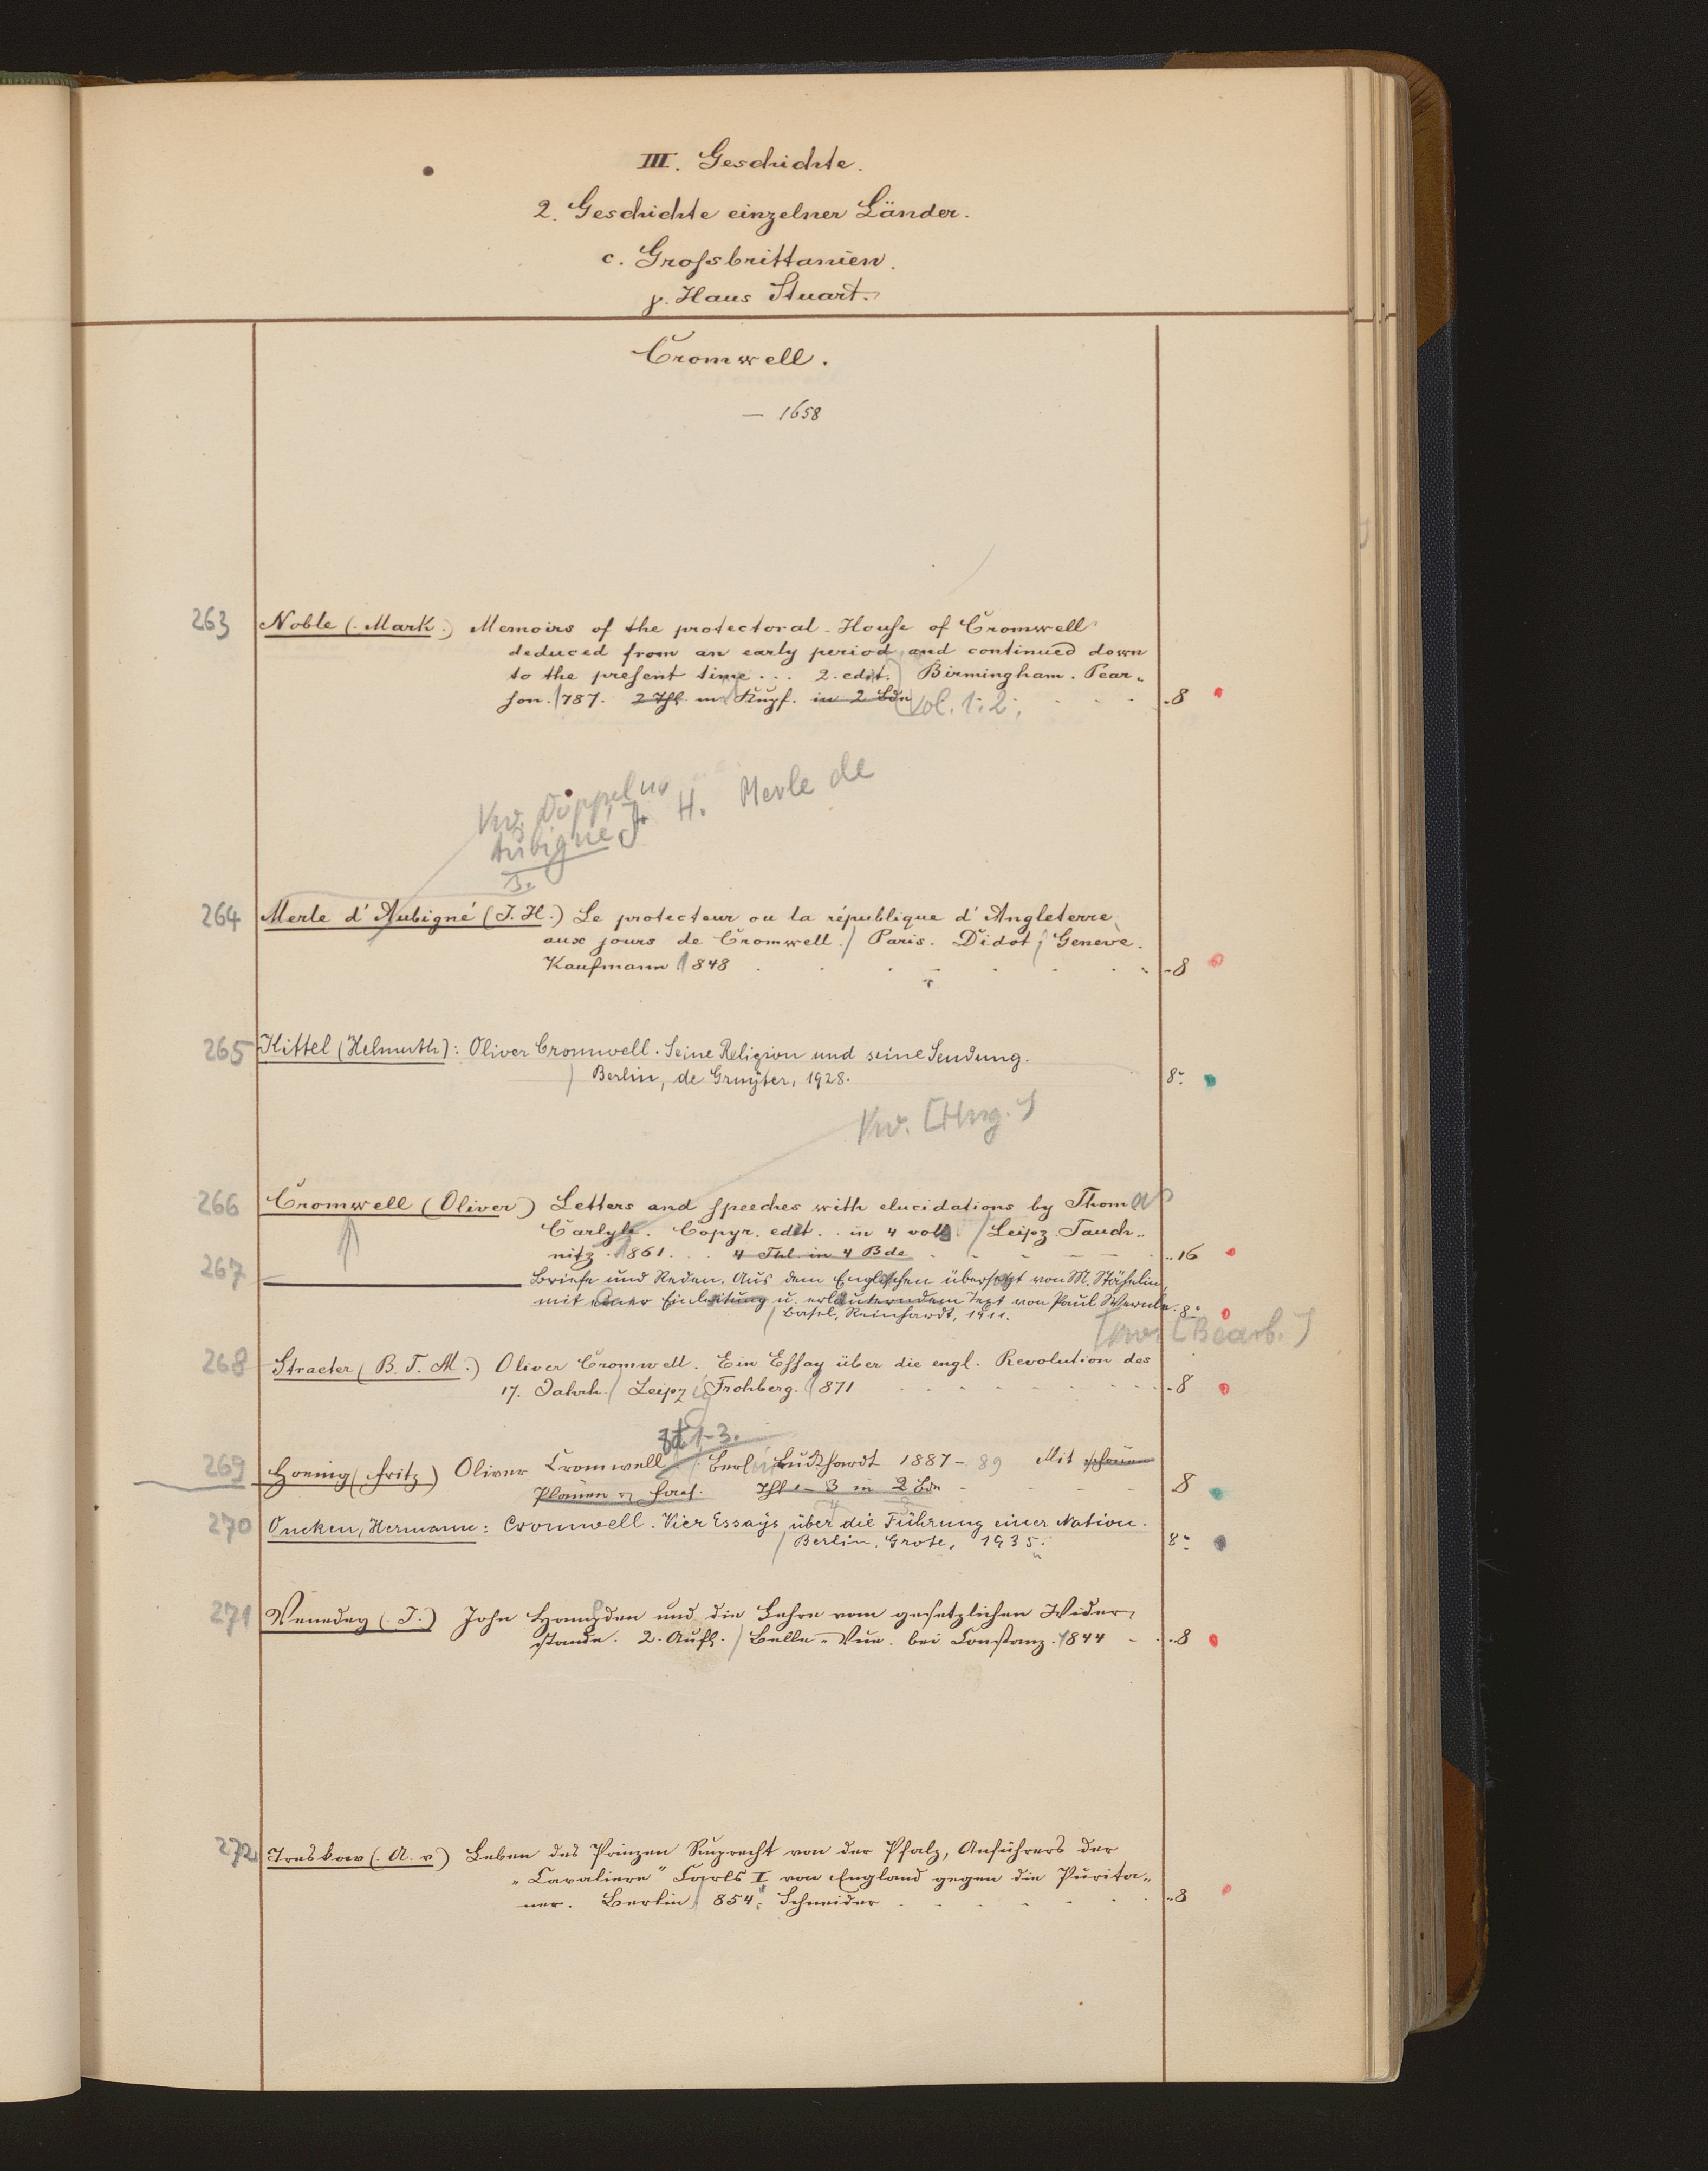 III. Geschichte.
2. Geschichte einzelner Länder.
c. Grossbrittanien.
γ. Haus Stuart.
Cromwell.
— 1658
263 Noble (Mark.) Memoirs of the protectoral-House of Cromwell
deduced from an early period and continued down
to the present time... 2. edit. Birmingham. Pear-
son. 1787. 2 Thl. m. Kupf. in 2 Bdn Vol. 1. 2. 8
Vw. Doppeln
Aubigne, J. H. Merle de
264 Merle d'Aubigné (J. H.) Le protecteur ou la république d'Angleterre
aux jours de Cromwell. / Paris. Didot / Genevè.
Kaufmann 1848 8
265 Kittel (Helmuth): Oliver Cromwell. Seine Religion und seine Sendung.
/ Berlin, de Gruyter, 1928. 8°
Vw. [Hrsg.]
266 Cromwell (Oliver) Letters and speeches with elucidations by Thomas
Carlyle. Copyr. edit. in 4 vols. / Leipz. Tauch-
nitz. 1861. 4 Thl. in 4 Bde 16
267 ——— Briefe und Reden. Aus dem Englischen übersetzt von M. Stähelin,
mit einer Einleitung u. erläuterndem Text von Paul Wernle. 8°
/ Basel, Reinhardt, 1911.
[Bearb.]
268 Straeter (B. T. M.) Oliver Cromwell. Ein Essay über die engl. Revolution des
17. Jahrh. / Leipzig Frohberg. 1871 8
Bd 1-3.
269 Hoenig (Fritz) Oliver Cromwell. / Berlin Luckhardt 1887-89 Mit schönen
Plänen u. Thl 1-3 in 2 Bdn 8
270 Oncken, Hermann: Cromwell. Vier Essays über die Führung einer Nation.
/ Berlin, Grote, 1935. 8°
271 Venedey (J.) John Hampden und die Lehre vom gesetzlichen Wider-
stande. 2. Aufl. / Belle-Vue. bei Constanz. 1844 8
272 Treskow (A. v) Leben des Prinzen Ruprecht von der Pfalz, Anführers der
„Cavaliere" Carls I von England gegen die Purita-
ner. Berlin 1854. Schneider 8